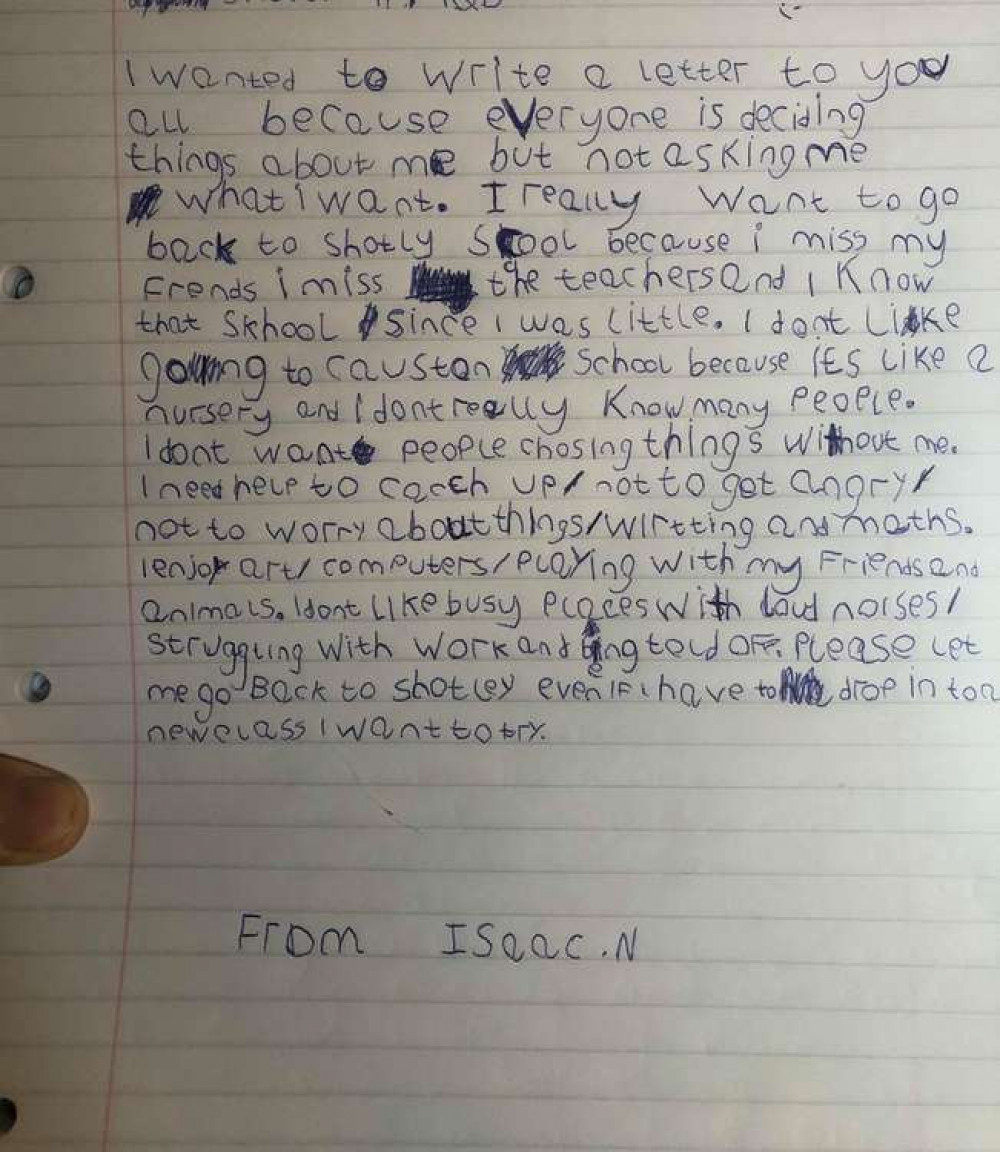 I wanted to write a letter to you
all because everyone is deciding
things about me but not asking me
what i want. I really want to go
back to shotly Scool because i miss my
Frends i miss the teachers and I know
that skhool since I was little. I dont like
going to causton School because its like a
nursery and I dont really know many people.
I dont want people chosing things without me.
I need help to catch up/ not to get angry/
not to worry about things/wirtting and maths.
I enjoy art/ computers/playing with my Friends and
animals. I dont like busy places with loud noises/
struggling with work and being told off. Please let
me go Back to shotley even if i have to drop in to a
new class I want to try.
From Isaac.N